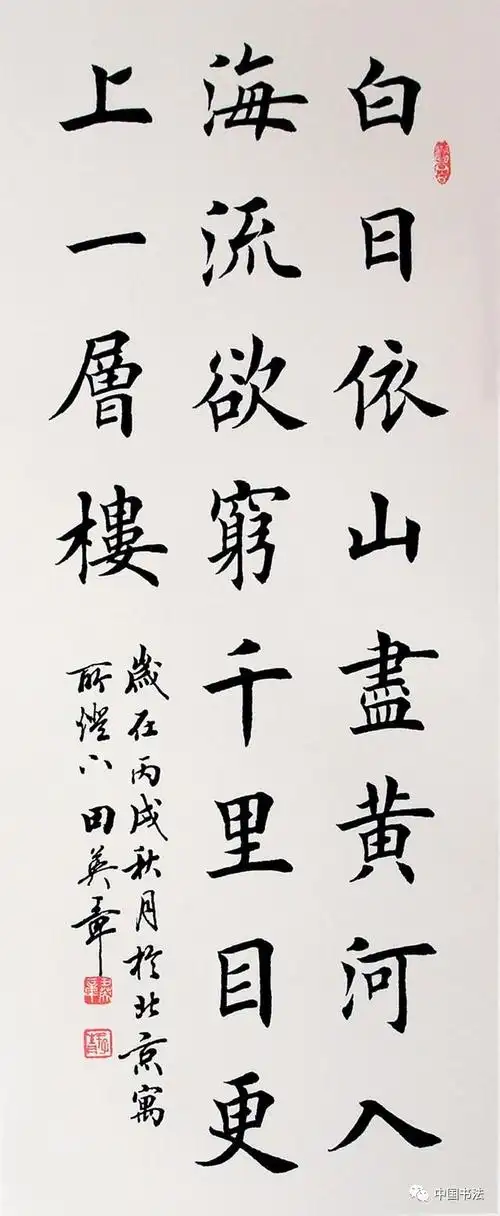 白日依山盡黄河入
海流欲窮千里目更
上一層樓
歲在丙戌秋月於北京寓
所燈下田英章
中国书法